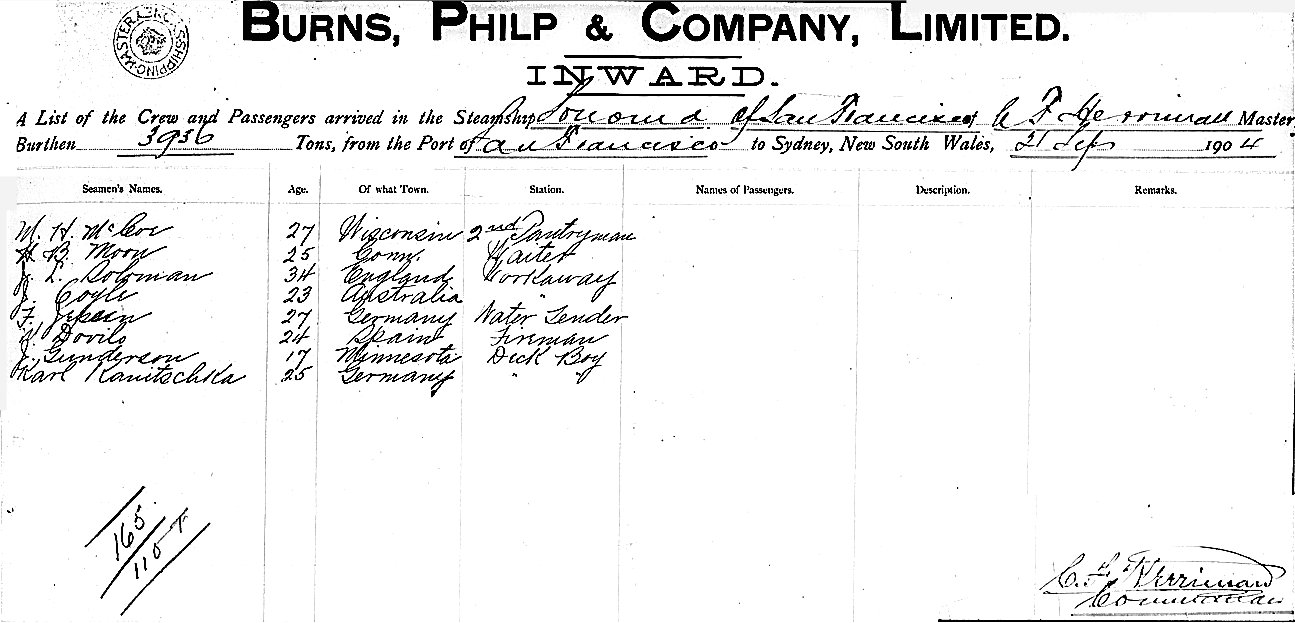 BURNS, PHILP & COMPANY, LIMITED.
INWARD.
A List of the Crew and Passengers arrived in the Steamship Sonoma of San Francisco C F Herriman Master,
Burthen 3936 Tons, from the Port of San Francisco to Sydney, New South Wales, 21 Sep 1904
Seamen's Names. Age. Of what Town. Station. Names of Passengers. Description. Remarks.
M. H. McCoe 27 Wisconsin 2nd Pantryman
H. B. Moon 25 Conn. Waiter
J. L. Soloman 34 England Workaway
J. Coyle 23 Australia "
F. 27 Germany Water Tender
Dovilo 24 Spain Fireman
J. Gunderson 17 Minnesota Deck Boy
Karl Kanitschka 25 Germany " "
165
110 +
C. F. Herriman
Commander